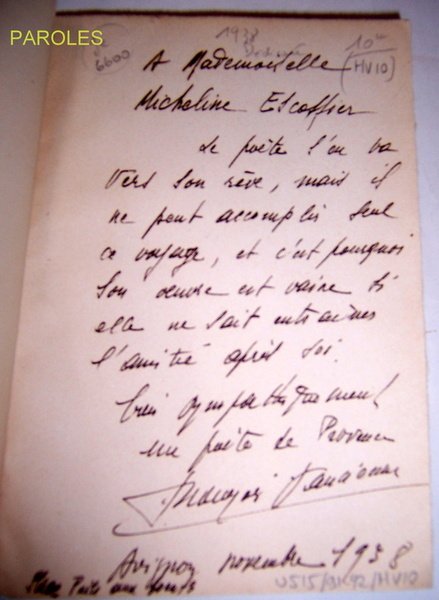 PAROLES
6600
1938
10
(HV10)
A Mademoiselle
Micheline Escoffier
Le poète s'en va
vers son rêve, mais il
ne peut accomplir seul
ce voyage, et c'est pourquoi
son oeuvre est vaine si
elle ne sait entraîner
l'amitié après soi.
bien sympathiquement
un poète de Provence
Avignon novembre 1938
Place Puits aux
U515/31-92/HV10